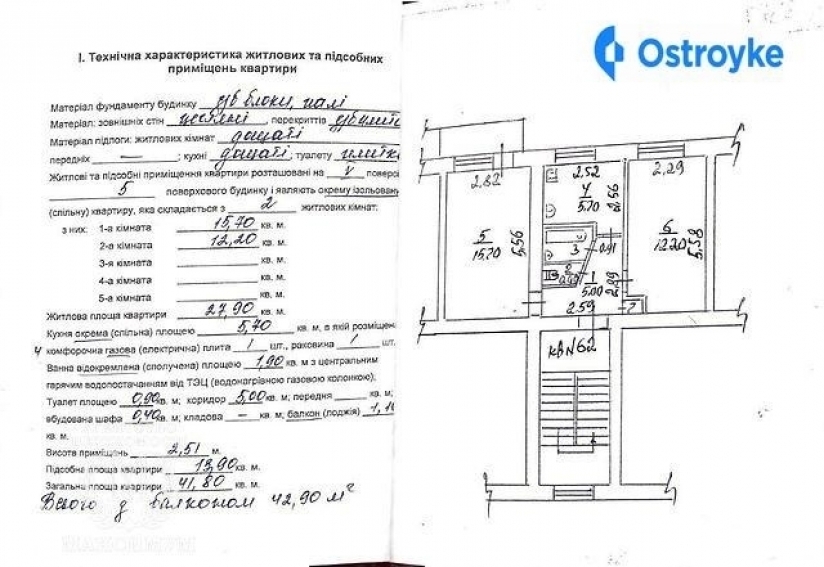 Ostroyke
I. Технічна характеристика житлових та підсобних
приміщень квартири
Матеріал фундаменту будинку з/б блоки, палі
Матеріал: зовнішніх стін цегляні, перекриттів
Матеріал підлоги: житлових кімнат дощаті
передніх —; кухні дощаті; туалету плитка
Житлові та підсобні приміщення квартири розташовані на V поверсі
5 поверхового будинку і являють окрему ізольовану
(спільну) квартиру, яка складається з 2 житлових кімнат.
з них: 1-а кімната 15,70 кв. м.
2-а кімната 12,20 кв. м.
3-я кімната кв. м.
4-а кімната кв. м.
5-а кімната кв. м.
Житлова площа квартири 27,90 кв. м.
Кухня окрема (спільна) площею 5,70 кв. м, в якій розміщена
4 комфорочна газова (електрична) плита 1 шт., раковина 1 шт.
Ванна відокремлена (сполучена) площею 1,90 кв. м з центральним
гарячим водопостачанням від ТЭЦ (водонагрівною газовою колонкою).
Туалет площею 0,90 кв. м; коридор 5,00 кв. м; передня кв. м;
вбудована шафа 0,40 кв. м; кладова — кв. м; балкон (лоджія) 1,10
кв. м.
Висота приміщень 2,51 м.
Підсобна площа квартири 13,90 кв. м.
Загальна площа квартири 41,80 кв. м.
Всього з балконом 42,90 м²
2.82
2.52
2.29
4
5.70
2.56
5
15.70
5.56
6
12.20
5.38
3
0.91
2
0.90
1
5.00
2.89
2.59
7
кв N62